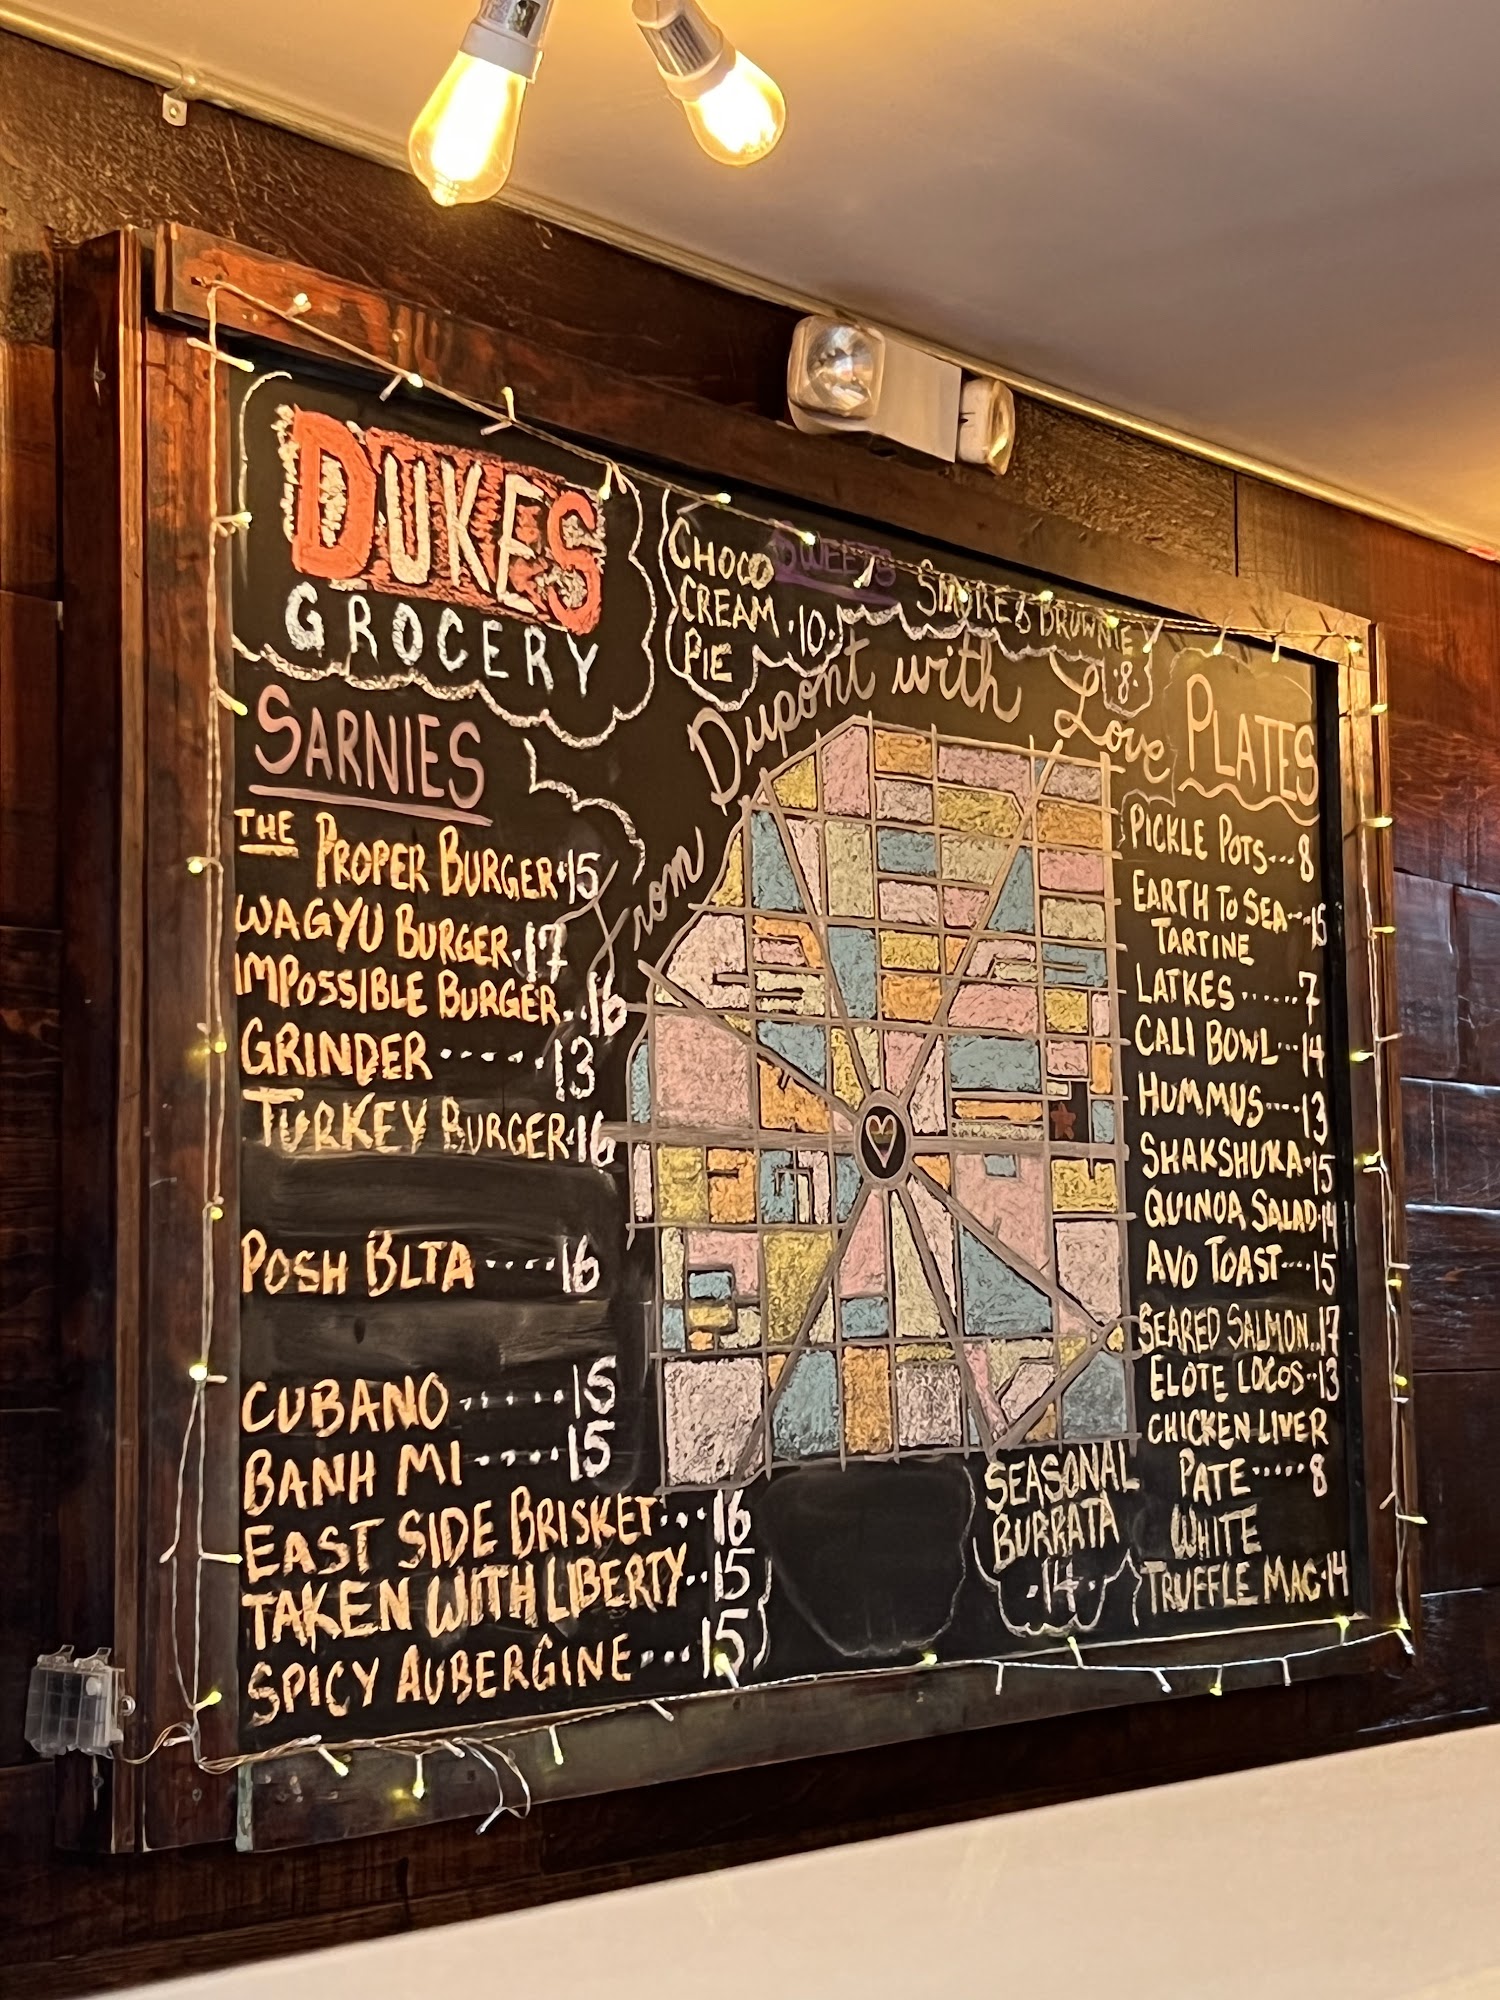 DUKES
GROCERY
SWEETS
CHOCO
CREAM .10.
PIE
S'MORES BROWNIE
.8.
From Dupont with Love
SARNIES
THE PROPER BURGER.15
WAGYU BURGER.17
IMPOSSIBLE BURGER..16
GRINDER ......13
TURKEY BURGER.16
POSH BLTA ....16
CUBANO ......15
BANH MI .....15
EAST SIDE BRISKET...16
TAKEN WITH LIBERTY..15
SPICY AUBERGINE...15
SEASONAL
BURRATA
.14.
PLATES
PICKLE POTS...8
EARTH TO SEA...15
TARTINE
LATKES ......7
CALI BOWL...14
HUMMUS....13
SHAKSHUKA.15
QUINOA SALAD.14
AVO TOAST....15
SEARED SALMON..17
ELOTE LOCOS..13
CHICKEN LIVER
PATE.....8
WHITE
TRUFFLE MAC.14